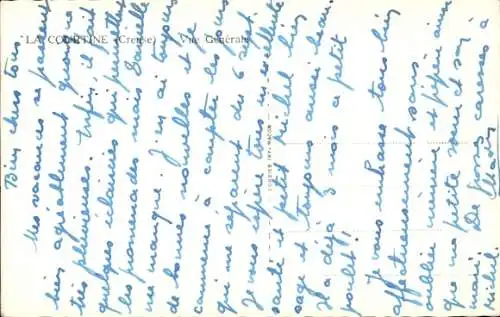 LA COURTINE (Creuse) Vue Générale
Bien chers tous
Mes vacances se passent
bien agréablement quoique
très pluvieuses. Enfin, il y a
quelques éclaircies qui permettent
les promenades mais Danielle
me manque. J'en ai toujours
de bonnes nouvelles et je
commence à compter les jours
qui me séparent du 6 sept.
Je vous espère tous en excellente
santé et petit Michel bien
sage et toujours aussi beau.
Il a déjà 3 mois ce petit
poulet !
Je vous embrasse tous bien
affectueusement sans
oublier mémère et pépère ainsi
que ma petite sœur et son
mari. De grosses caresses à
Michel.